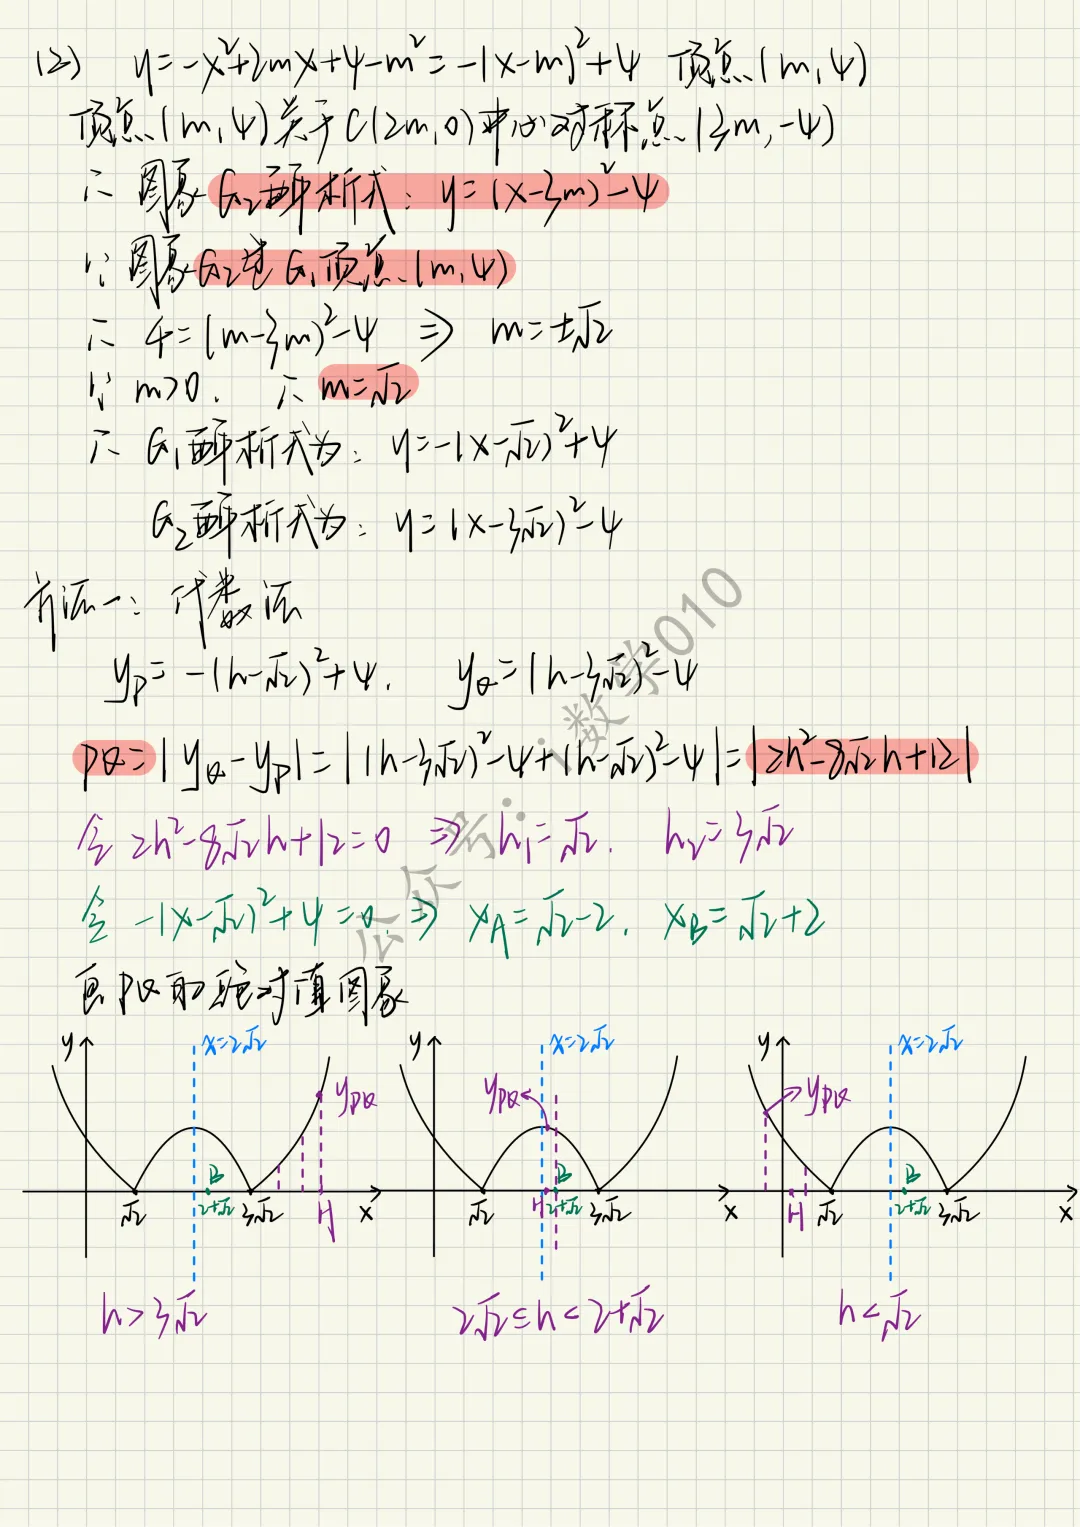 (2) y=-x²+2mx+4-m²=-(x-m)²+4 顶点(m,4)
顶点(m,4)关于C(2m,0)中心对称点(3m,-4)
∴ 图象G₂解析式: y=(x-3m)²-4
∵ 图象G₂过G₁顶点(m,4)
∴ 4=(m-3m)²-4 ⇒ m=±√2
∵ m>0. ∴ m=√2
∴ G₁解析式为: y=-(x-√2)²+4
G₂解析式为: y=(x-3√2)²-4
方法一: 代数法
y_P=-(h-√2)²+4. y_Q=(h-3√2)²-4
PQ=|y_Q-y_P|=|(h-3√2)²-4+(h-√2)²-4|=|2h²-8√2h+12|
令 2h²-8√2h+12=0 ⇒ h₁=√2. h₂=3√2
令 -(x-√2)²+4=0 ⇒ x_A=√2-2. x_B=√2+2
画PQ的绝对值图象
y x=2√2 y_PQ B √2 2+√2 3√2 H x
y x=2√2 y_PQ B √2 H 2+√2 3√2 x
y x=2√2 y_PQ B H √2 2+√2 3√2 x
h>3√2 2√2≤h<2+√2 h<√2
公众号: i数学010